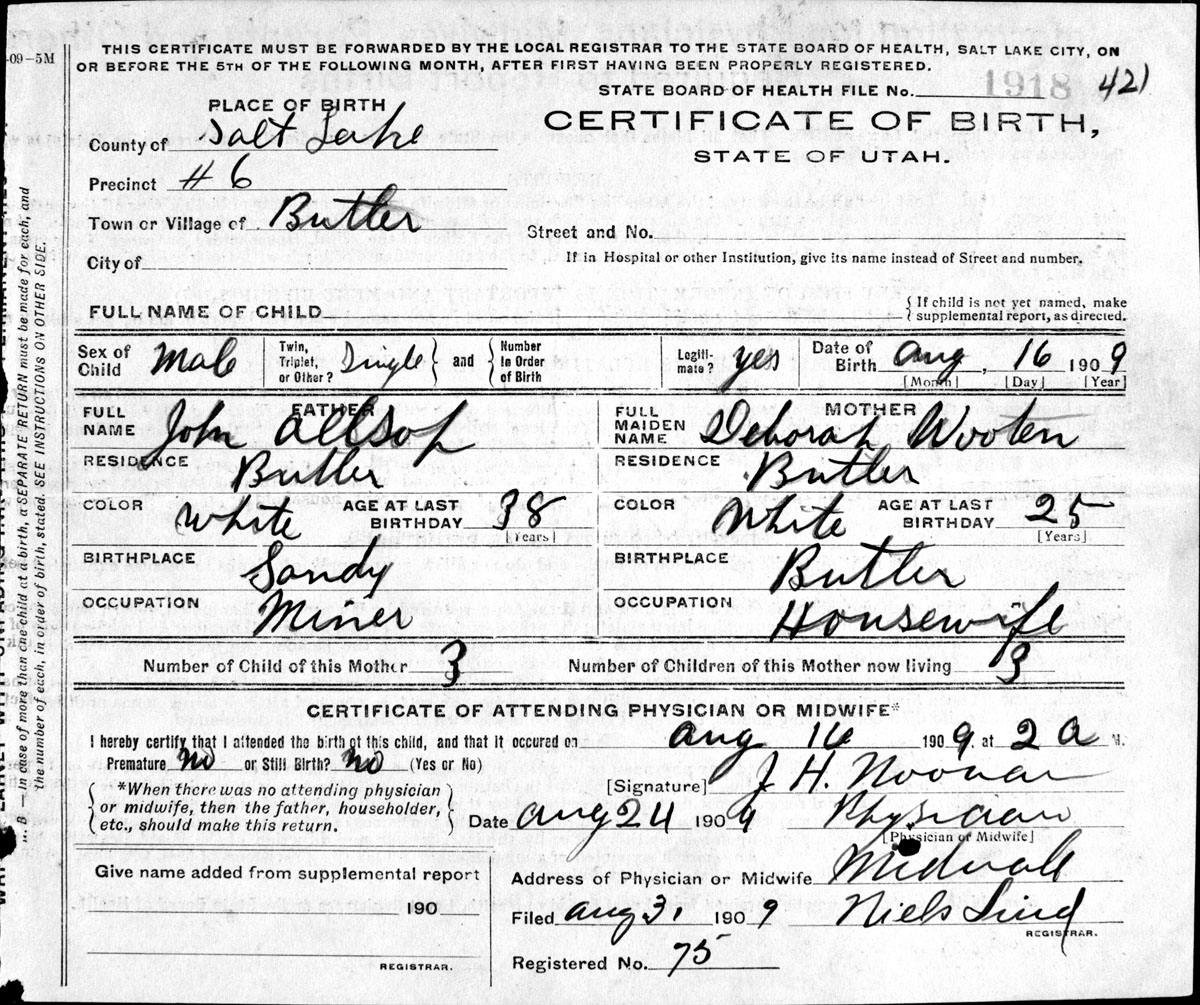 -09-5M
THIS CERTIFICATE MUST BE FORWARDED BY THE LOCAL REGISTRAR TO THE STATE BOARD OF HEALTH, SALT LAKE CITY, ON
OR BEFORE THE 5TH OF THE FOLLOWING MONTH, AFTER FIRST HAVING BEEN PROPERLY REGISTERED.
STATE BOARD OF HEALTH FILE No. 1918 421
PLACE OF BIRTH
County of Salt Lake
CERTIFICATE OF BIRTH,
STATE OF UTAH.
Precinct #6
Town or Village of Butler
Street and No.
City of
If in Hospital or other Institution, give its name instead of Street and number.
FULL NAME OF CHILD { If child is not yet named, make supplemental report, as directed.
Sex of Child Male Twin, Triplet, or Other? Single } and { Number in Order of Birth Legitimate? yes Date of Birth Aug, 16 1909
[Month] [Day] [Year]
FATHER
FULL NAME John Allsop
MOTHER
FULL MAIDEN NAME Deborah Wooten
RESIDENCE Butler RESIDENCE Butler
COLOR White AGE AT LAST BIRTHDAY 38 [Years] COLOR White AGE AT LAST BIRTHDAY 25 [Years]
BIRTHPLACE Sandy BIRTHPLACE Butler
OCCUPATION Miner OCCUPATION Housewife
Number of Child of this Mother 3 Number of Children of this Mother now living 3
CERTIFICATE OF ATTENDING PHYSICIAN OR MIDWIFE*
I hereby certify that I attended the birth of this child, and that it occured on Aug 16 1909, at 2 A M.
Premature No or Still Birth? No (Yes or No)
[Signature] J H. Noonan
*When there was no attending physician
or midwife, then the father, householder,
etc., should make this return.
Date Aug 24 1909 Physician
[Physician or Midwife]
Give name added from supplemental report
190
REGISTRAR.
Address of Physician or Midwife Midvale
Filed Aug 31 1909 Niels Lind
REGISTRAR.
Registered No. 75
N. B.—In case of more than one child at a birth, a SEPARATE RETURN must be made for each, and
the number of each, in order of birth, stated. SEE INSTRUCTIONS ON OTHER SIDE.